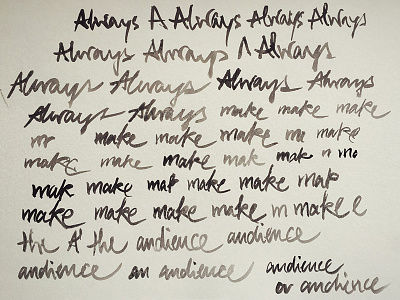 Always A Always Always Always
Always Always A Always
Always Always Always Always
Always Always make make make
mr make make make m make
make make make mak mak n ma
mak make mak make make mak
make make make make make m make e
the A the audience audience
audience an audience audience
or audience